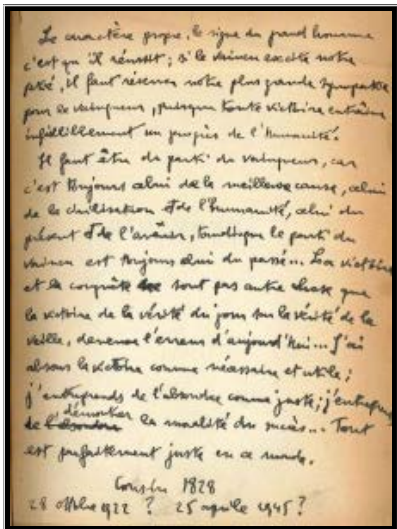 Le caractère propre, le signe du grand homme
c'est qu'il réussit ; si le vaincu excite notre
pitié, il faut réserver notre plus grande sympathie
pour le vainqueur, puisque toute victoire entraîne
infailliblement un progrès de l'Humanité.
Il faut être du parti du vainqueur, car
c'est toujours celui de la meilleure cause, celui
de la civilisation et de l'humanité, celui du
présent et de l'avenir, tandis que le parti du
vaincu est toujours celui du passé... La victoire
et la conquête ne sont pas autre chose que
la victoire de la vérité du jour sur la vérité de la
veille, devenue l'erreur d'aujourd'hui... J'ai
absous la victoire comme nécessaire et utile ;
j'entreprends de l'absoudre comme juste ; j'entreprends
de démontrer la moralité du succès... Tout
est parfaitement juste en ce monde.
Cousin 1828
28 ottobre 1922 ? 25 aprile 1945 ?